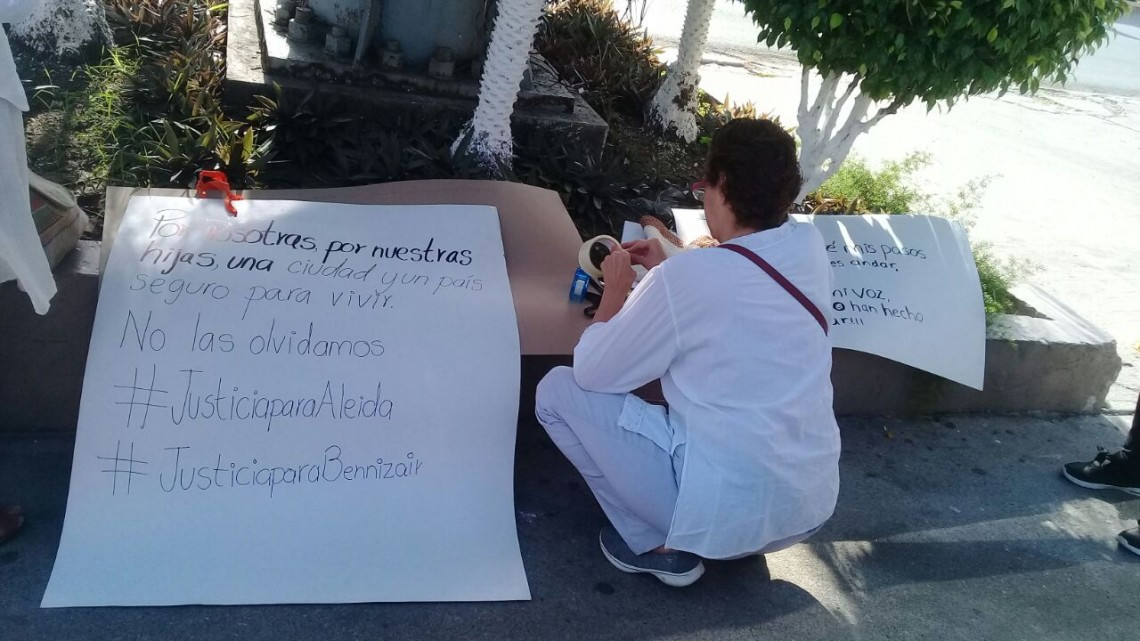 Por nosotras, por nuestras
hijas, una ciudad y un país
seguro para vivir.
No las olvidamos
#JusticiaparaAleida
#JusticiaparaBennizair
mis pasos
andar.
voz,
han hecho